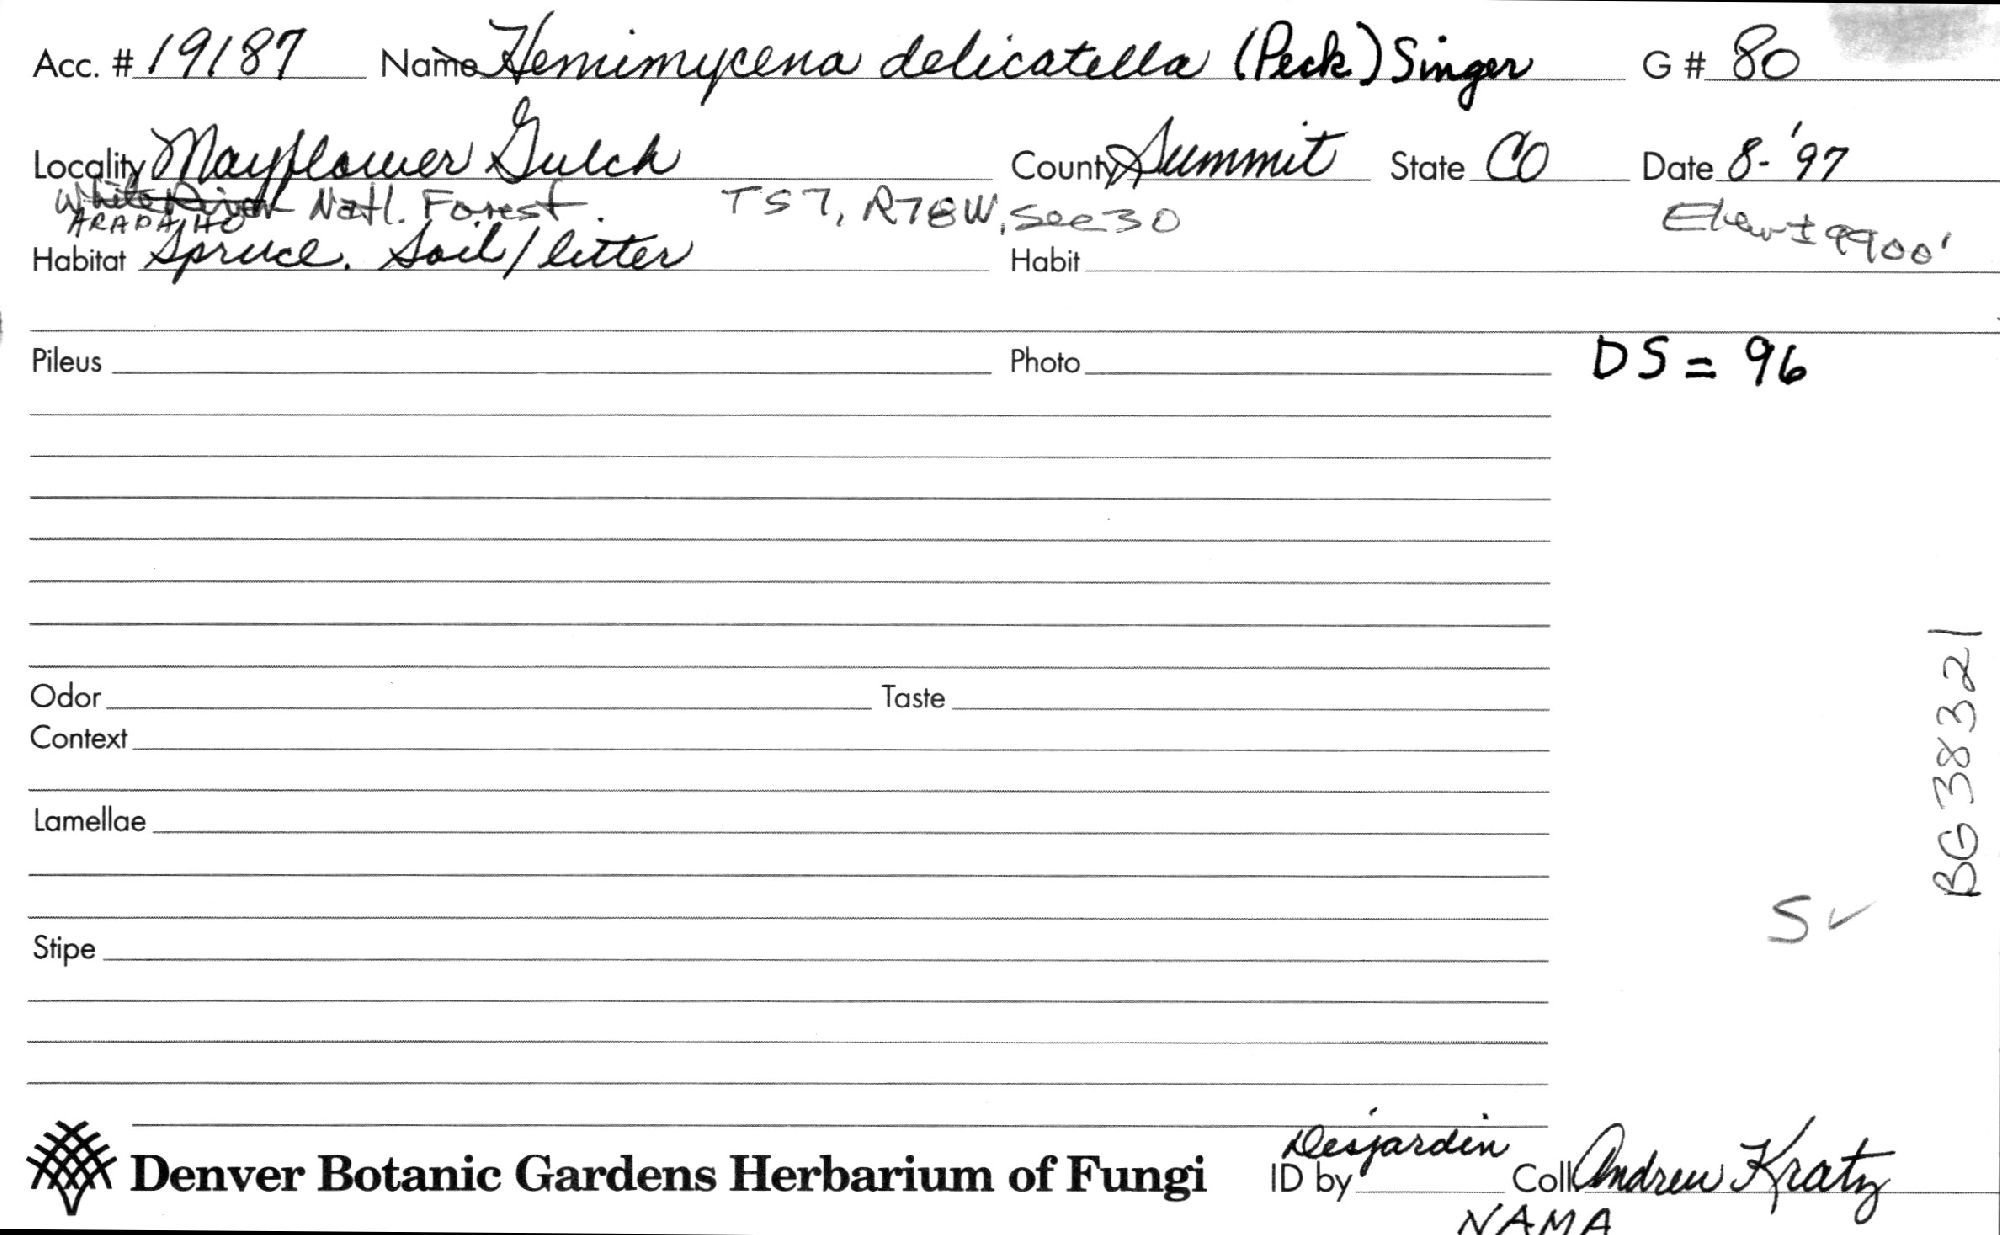 Acc. # 19187 Name Hemimycena delicatella (Peck) Singer G # 80
Locality Mayflower Gulch County Summit State CO Date 8-'97
White River Natl. Forest. TS7, R78W, Sec 30 Elev ± 9900'
ARAPAHO
Habitat Spruce. Soil/litter Habit
Pileus Photo DS = 96
Odor Taste
Context
Lamellae
BG 38321
S ✓
Stipe
Desjardin
Denver Botanic Gardens Herbarium of Fungi ID by Coll. Andrew Kratz
NAMA